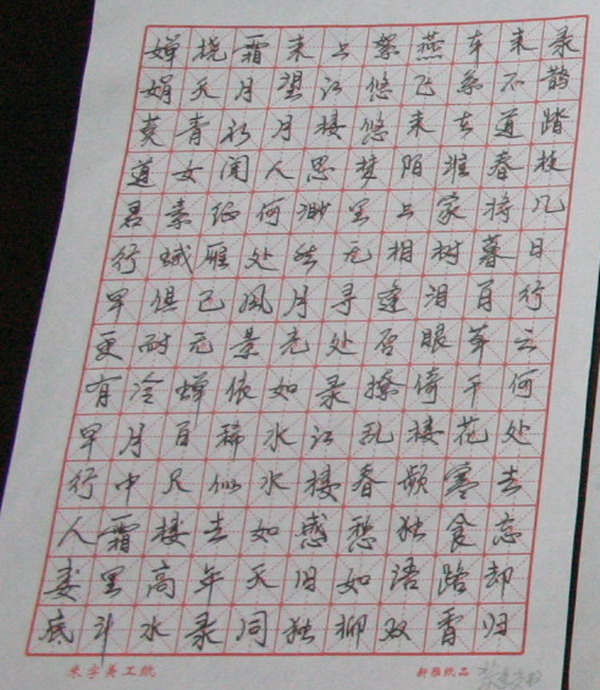 录鹊踏枝几日行云何处去忘却归
来不道春将暮百草千花寒食路香
车系在谁家树泪眼倚楼频独语双
燕飞来陌上相逢否撩乱春愁如柳
絮悠悠梦里无寻处录江楼感旧独
上江楼思渺然月光如水水如天同
来望月人何处风景依稀似去年录
霜月初闻征雁已无蝉百尺楼高水
接天青女素娥俱耐冷月中霜里斗
婵娟莫道君行早更有早行人娄底
米字美工纸
新雅纸品